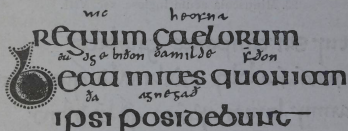 ric heofna
regnum caelorum
eadge biðon ða milde
Beati mites quoniam
ða agnegað
ipsi posidebunt